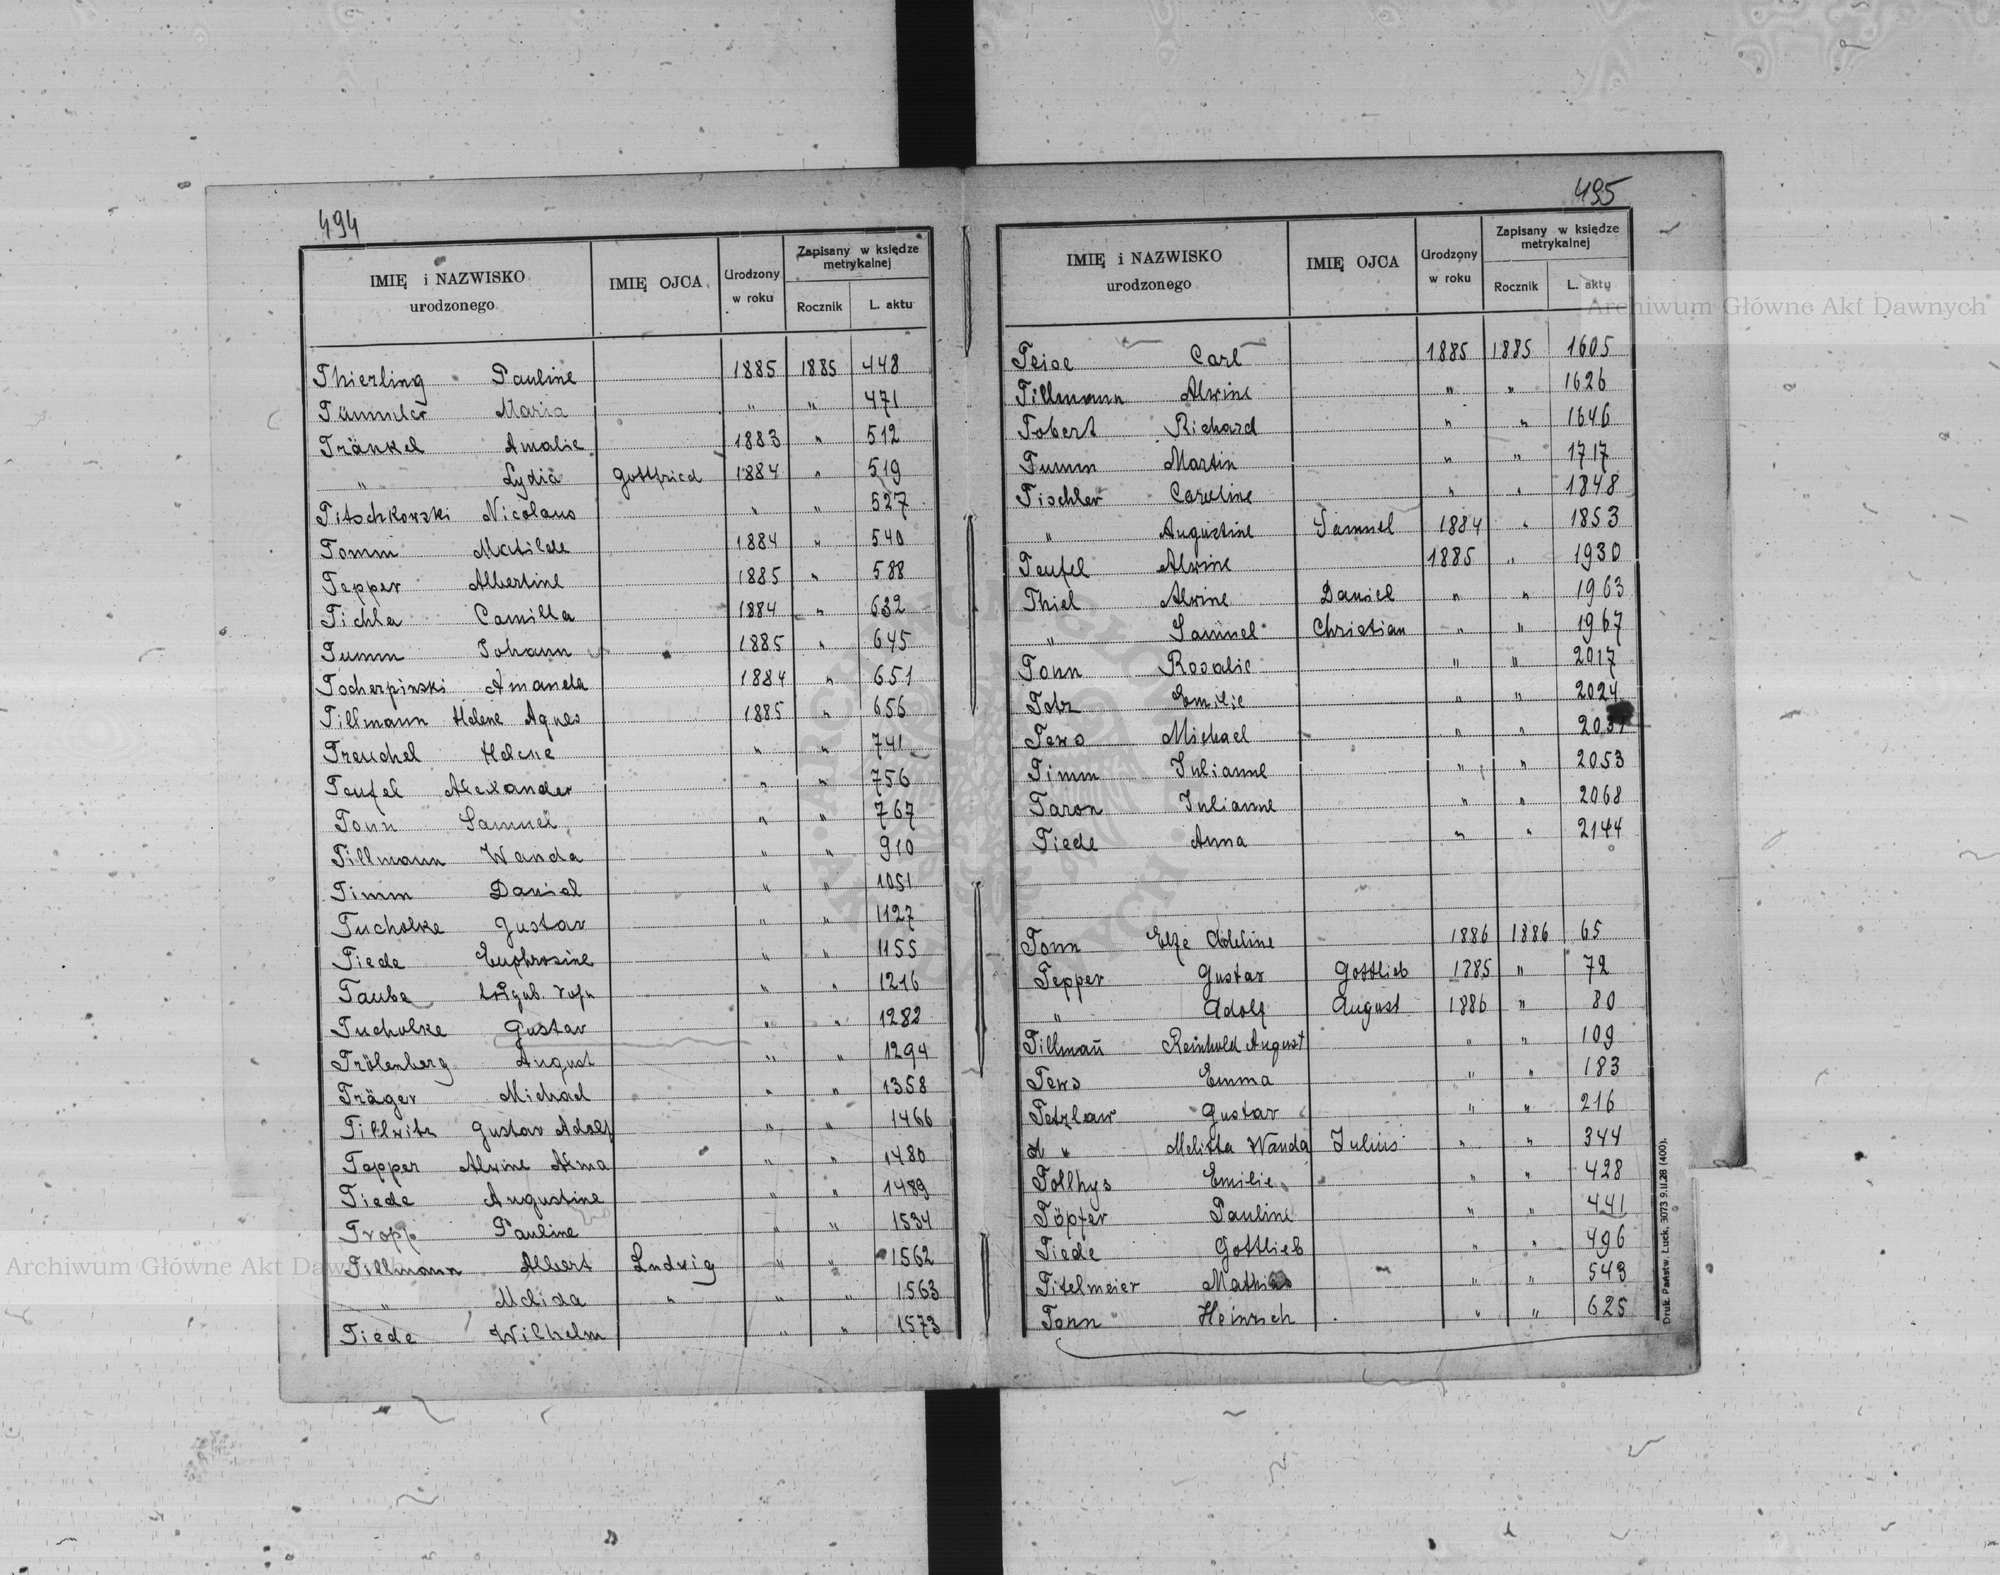 494
IMIĘ i NAZWISKO urodzonego IMIĘ OJCA Urodzony w roku Zapisany w księdze metrykalnej Rocznik L. aktu
Thierling Pauline 1885 1885 448
Tümmler Maria " " 471
Tränkel Amalie 1883 " 512
" Lydia Gottfried 1884 " 519
Titschkowski Nicolaus " " 527
Tomm Matilde 1884 " 540
Tepper Albertine 1885 " 588
Tichla Camilla 1884 " 632
Tumm Johann 1885 " 645
Tscherpinski Amanda 1884 " 651
Tillmann Helene Agnes 1885 " 656
Treuchel Helene " " 741
Teufel Alexander " " 756
Tonn Samuel " " 767
Tillmann Wanda " " 910
Timm Daniel " " 1051
Tucholke Gustav " " 1127
Tiede Euphrosine " " 1155
Taube " " 1216
Tucholke Gustav " " 1282
Trölenberg August " " 1294
Träger Michael " " 1358
Tillwitz Gustav Adolf " " 1466
Tepper Alwine Alma " " 1480
Tiede Augustine " " 1489
Tropp Pauline " " 1534
Tillmann Albert Ludwig " " 1562
" Melida " " " 1563
Tiede Wilhelm " " 1573
495
IMIĘ i NAZWISKO urodzonego IMIĘ OJCA Urodzony w roku Zapisany w księdze metrykalnej Rocznik L. aktu
Carl 1885 1885 1605
Tillmann Alwine " " 1626
Tobert Richard " " 1646
Tumm Martin " " 1717
Tischler Caroline " " 1848
" Augustine Samuel 1884 " 1853
Teufel Alwine 1885 " 1930
Thiel Alwine Daniel " " 1963
" Samuel Christian " " 1967
Tonn Rosalie " " 2017
Totz Emilie " " 2024
Tews Michael " " 2031
Timm Julianne " " 2053
Taron Julianne " " 2068
Tiede Anna " " 2144
Tonn Elze Adeline 1886 1886 65
Tepper Gustav Gottlieb 1885 " 72
" Adolf August 1886 " 80
Tillmañ Reinhold August " " 109
Tews Emma " " 183
Tetzlaw Gustav " " 216
" Melitta Wanda Julius " " 344
Tollhys Emilie " " 428
Töpfer Pauline " " 441
Tiede Gottlieb " " 496
Titelmeier Mathias " " 543
Tonn Heinrich " " 625
Druk. Państw. Łuck, 3073 9.II.28 (400).
Archiwum Główne Akt Dawnych
Archiwum Główne Akt Dawnych